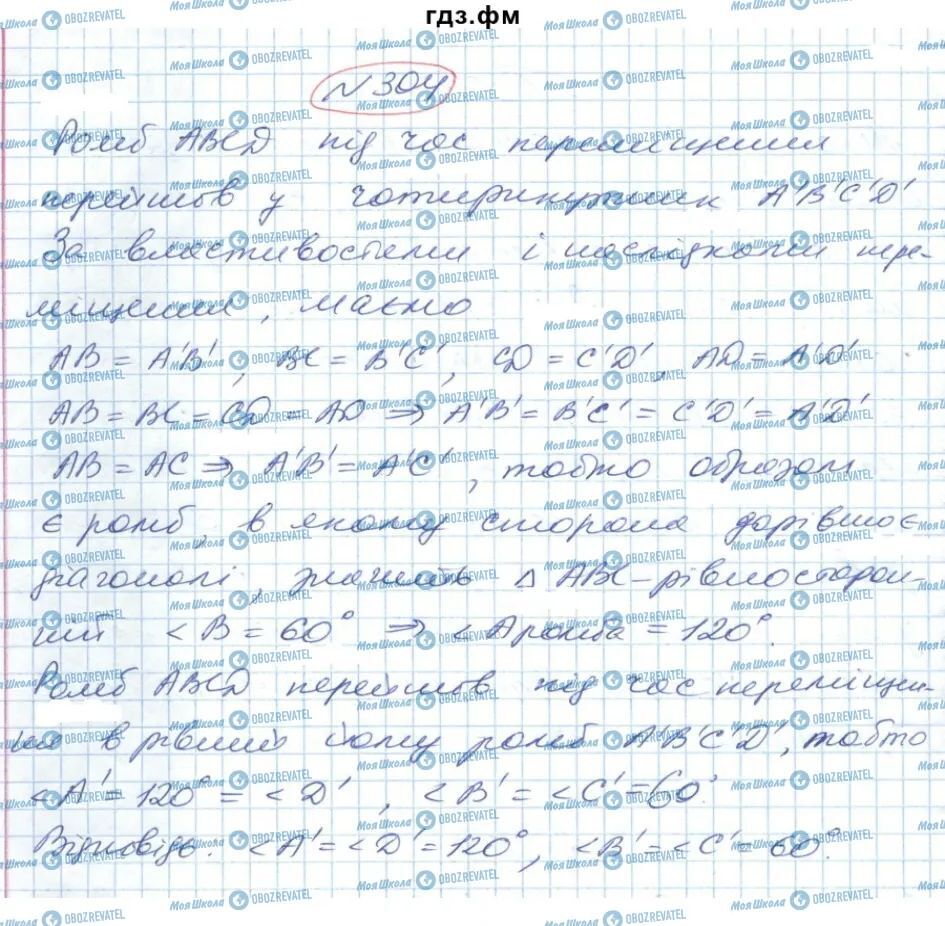 гдз.фм
№304
Ромб ABCD під час переміщення
перейшов у чотирикутник A'B'C'D'
За властивостями і наслідками пере-
міщення, маємо
AB = A'B', BC = B'C', CD = C'D', AD = A'D'
AB = BC = CD = AD => A'B' = B'C' = C'D' = A'D'
AB = AC => A'B' = A'C', тобто образом
є ромб, в якому сторона дорівнює
діагоналі, значить △ ABC - рівносторон-
ній <B = 60° => <A ромба = 120°.
Ромб ABCD перейшов під час переміщен-
ня в рівний йому ромб A'B'C'D', тобто
<A' = 120° = <D', <B' = <C' = 60°.
Відповідь: <A' = <D' = 120°, <B' = <C' = 60°.
МояШкола OBOZREVATEL